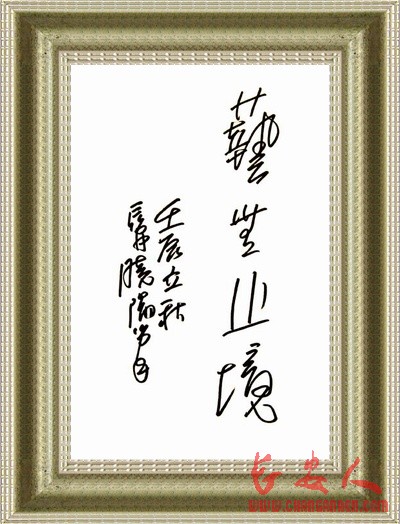 藝無止境
壬辰立秋
长安人
WWW.CHANGANREN.COM